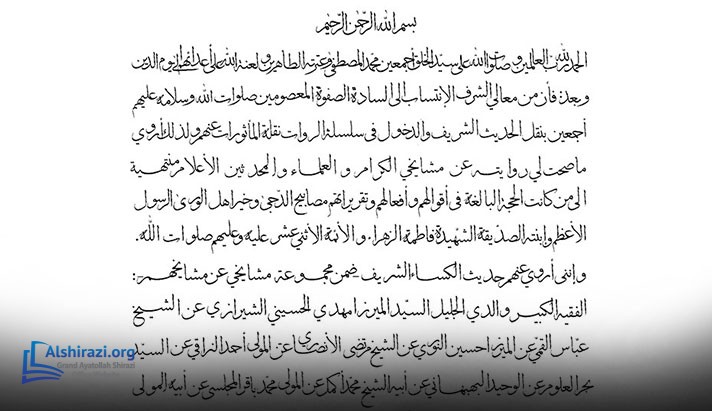 بسم الله الرحمن الرحيم
الحمد لله رب العالمين وصلوات الله على سيد الخلق أجمعين محمد المصطفى وعترته الطاهرين ولعنة الله على أعدائهم إلى يوم الدين
وبعد: فأن من معالي الشرف الإنتساب الى السادة الصفوة المعصومين صلوات الله وسلامه عليهم
أجمعين بنقل الحديث الشريف والدخول في سلسلة الروات نقلة المأثورات عنهم ولذلك أروي
ما صحت لي روايته عن مشايخي الكرام و العلماء و المحدثين الأعلام منتهية
الى من كانت الحجة البالغة في أقوالهم وأفعالهم وتقريراتهم مصابيح الدجى وخير اهل الورى الرسول
الأعظم وإبنته الصديقة الشهيدة فاطمة الزهراء. و الأئمة الأثني عشر عليه وعليهم صلوات الله.
و إنني أروي عنهم حديث الكساء الشريف ضمن مجموعة مشايخي عن مشايخهم:
الفقيه الكبير والدي الجليل السيد الميرزا مهدي الحسيني الشيرازي عن الشيخ
عباس القمي عن الميرزا حسين النوري عن الشيخ مرتضى الأنصاري عن المولى أحمد النراقي عن السيد
بحر العلوم عن الوحيد البهبهاني عن أبيه الشيخ محمد أكمل عن المولى محمد باقر المجلسي عن أبيه المولى
Alshirazi.org
Grand Ayatollah Shirazi